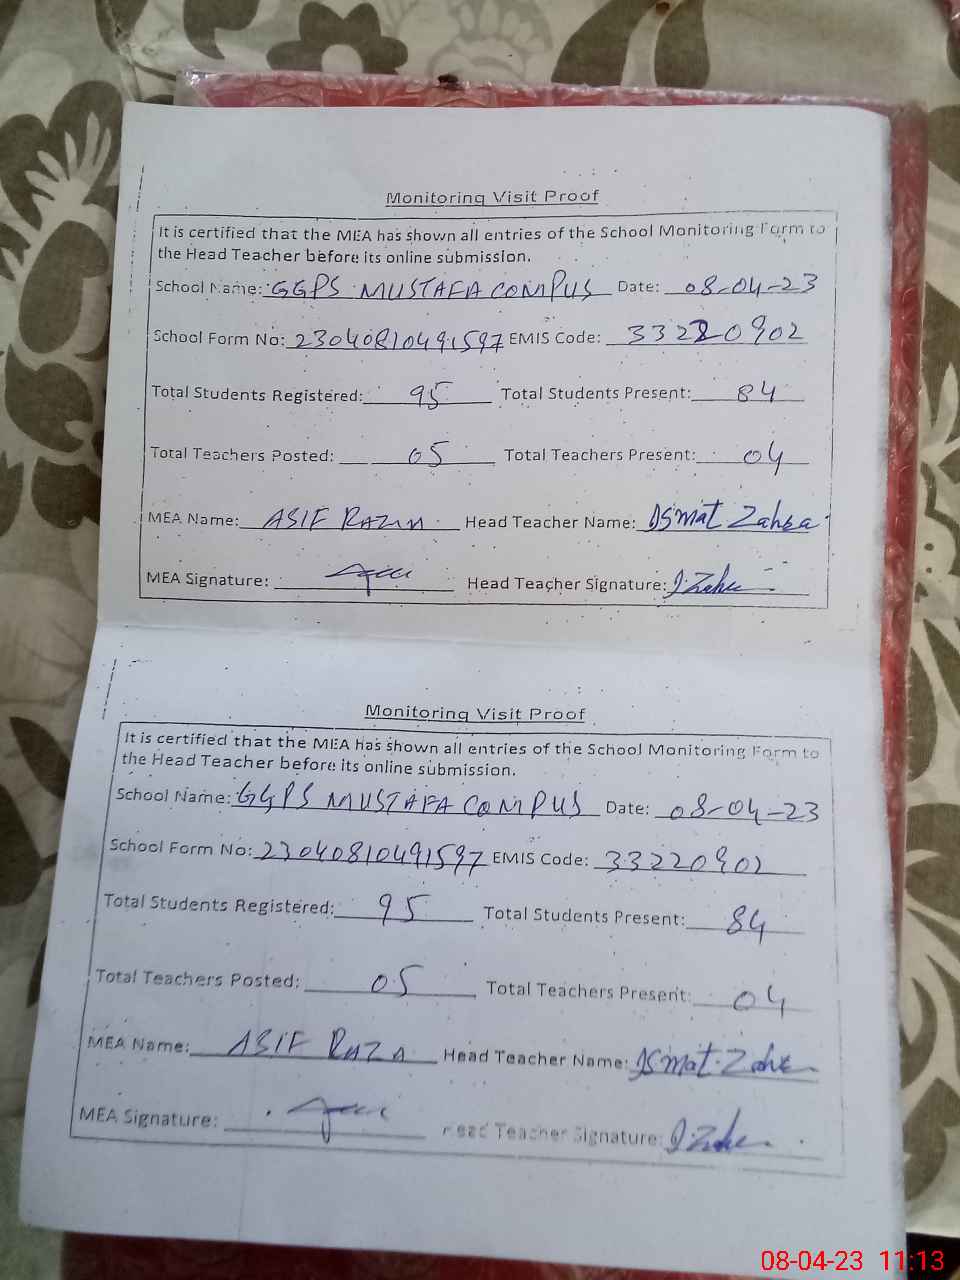 Monitoring Visit Proof
It is certified that the MEA has shown all entries of the School Monitoring Form to
the Head Teacher before its online submission.
School Name: GGPS MUSTAFA COMPUS Date: 08-04-23
School Form No: 23040810491597 EMIS Code: 33220902
Total Students Registered: 95 Total Students Present: 84
Total Teachers Posted: 05 Total Teachers Present: 04
MEA Name: ASIF RAZA Head Teacher Name: ISmat Zahra
MEA Signature: Head Teacher Signature: I.Zahra
Monitoring Visit Proof
It is certified that the MEA has shown all entries of the School Monitoring Form to
the Head Teacher before its online submission.
School Name: GGPS MUSTAFA COMPUS Date: 08-04-23
School Form No: 23040810491597 EMIS Code: 33220902
Total Students Registered: 95 Total Students Present: 84
Total Teachers Posted: 05 Total Teachers Present: 04
MEA Name: ASIF RAZA Head Teacher Name: ISmat Zahra
MEA Signature: Head Teacher Signature: I.Zahra
08-04-23 11:13